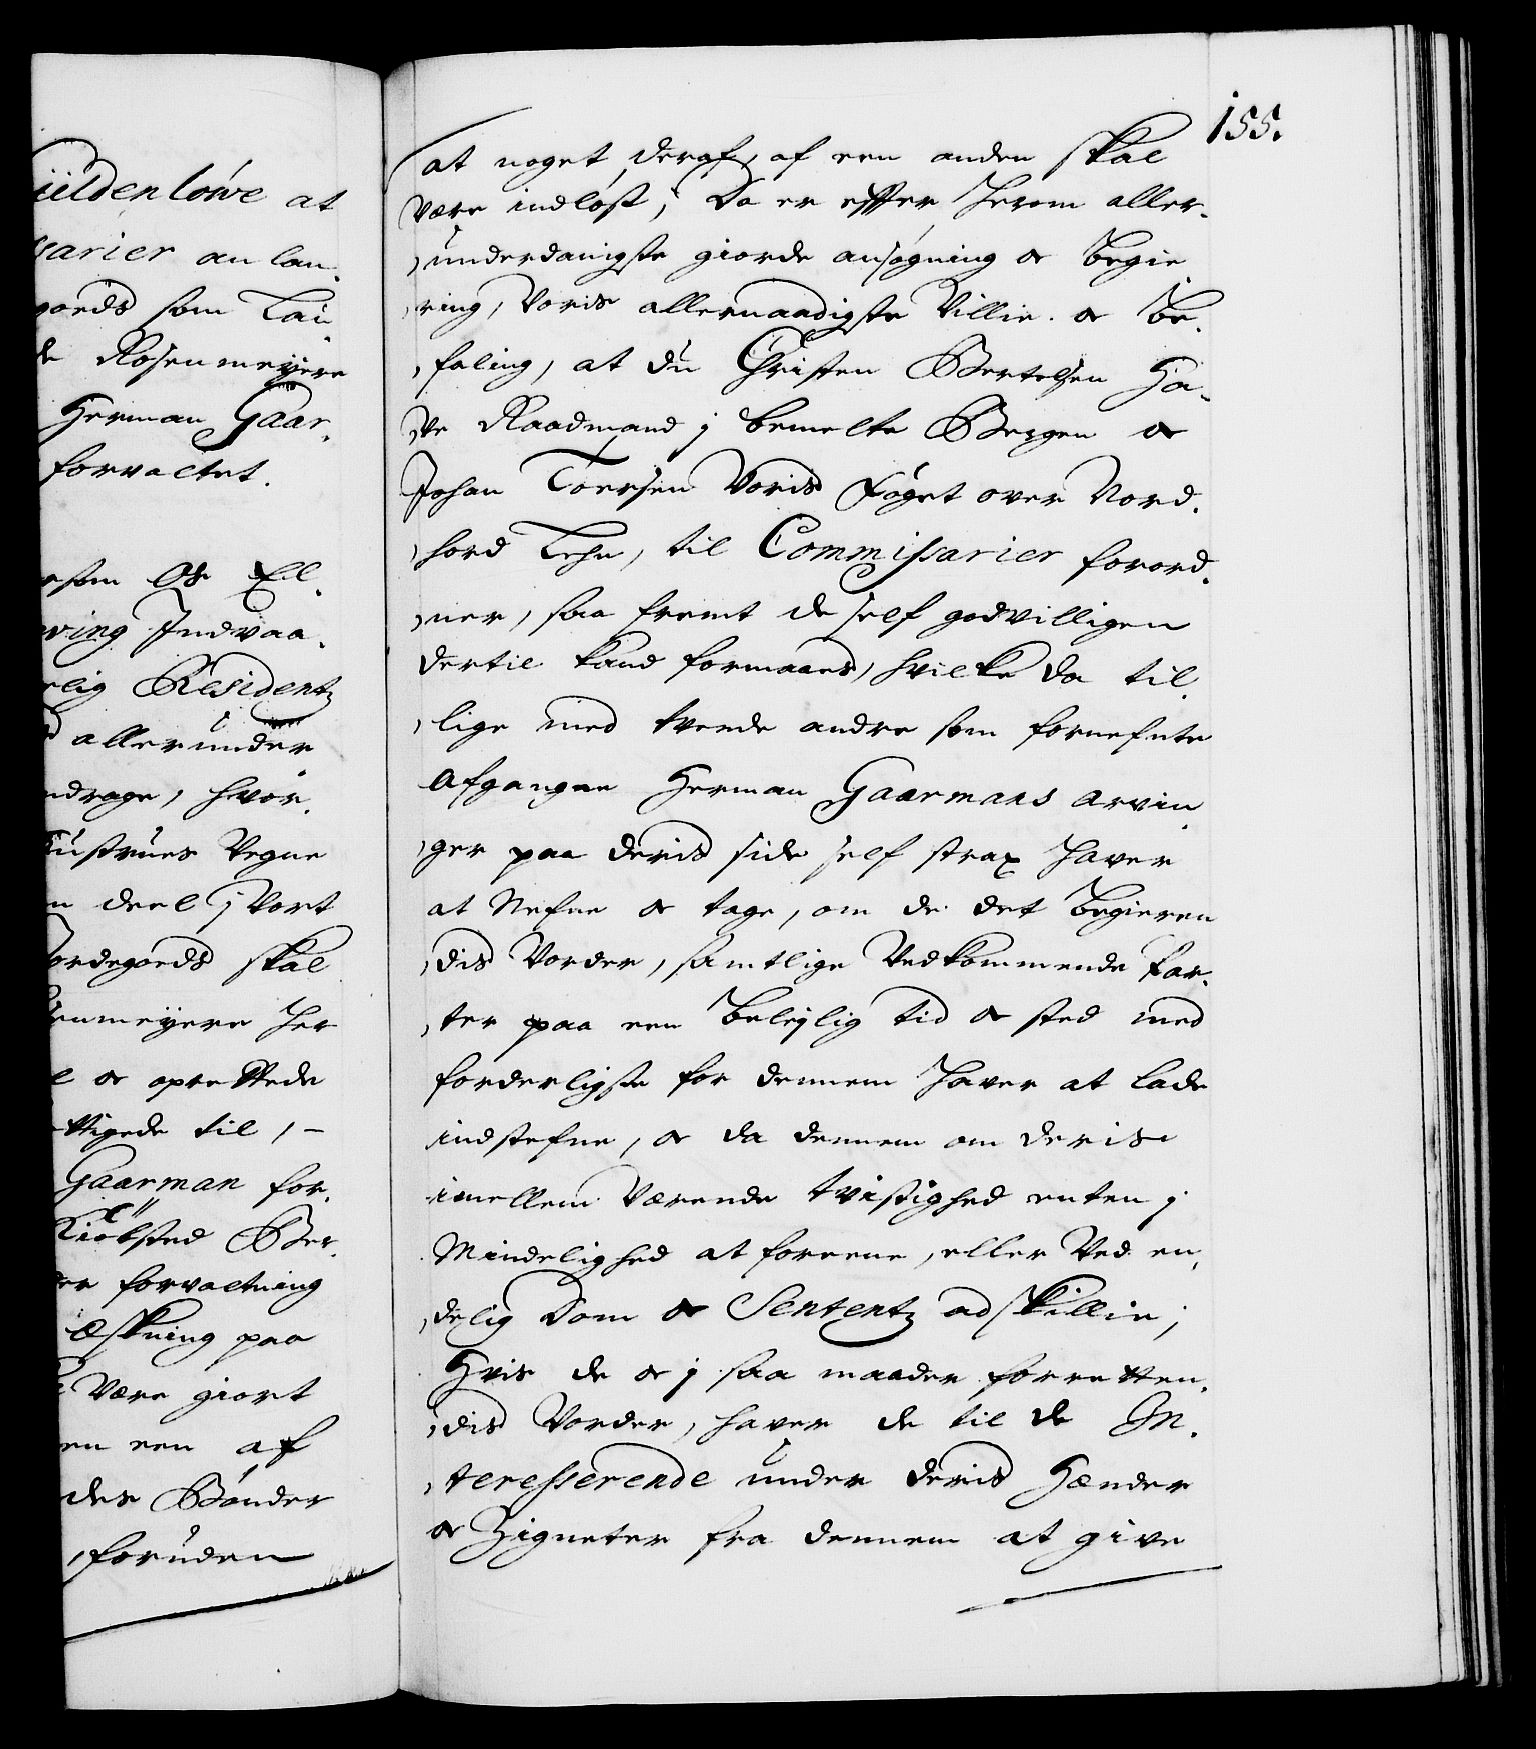 üldenlöwe at
sarier an lan-
goeds som Lau-
de Rosenmeyere
Herman Gaar-
forvaltet.
rsom Os El-
ring Indvaa-
rlig Residentz
allerunder
ndrage, hvor-
Hustrues Vegne
n deel j Vort
Jordegoeds skal
senmeyere her
l oc oprettede
ettigede til, -
Gaarman for-
Kiöbsted Ber-
der forvaltning
Æskning paa
Være giort
en een af
des Bönder
foruden
155.
at noget deraf, af een anden skal
være indlöst; Da er effter herom aller-
underdanigste giorde ansögning oc begie
ring, Voris allernaadigste Villie oc be-
faling, at du Christen Bertelsen Ga-
Raadmand j bemelte Bergen oc
Johan Toersen Voris Foget over Nord-
hord Lehn, til Commissarier forord-
ner, saa fremt de self godvilligen
dertil kand formaaes, hvilke da til-
lige med tvende andre som fornefnte
Afgangne Herman Gaarmans Arvin
ger paa deris side self strax haver
at Nefne oc tage, om de det begieren
dis Vorder, samtlige Vedkommende Par-
ter paa een beleylig tid oc sted med
forderligste for dennem haver at lade
indstefne, oc da dennem om deris
imellem Værende tvistighed enten j
Mindelighed at foreene, eller Ved en-
delig Dom oc Sententz adskillie;
Hvis de oc j saa maader forretten-
dis Vorder, haver de til de In-
teresserende under deris Hænder
oc Zigneter fra dennem at give